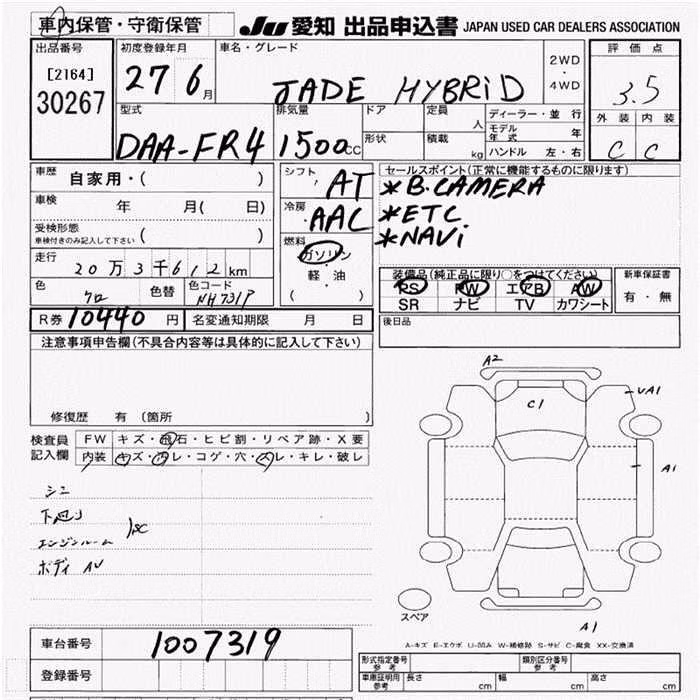 車内保管・守衛保管
JU 愛知 出品申込書 JAPAN USED CAR DEALERS ASSOCIATION
出品番号
[2164]
30267
初度登録年月
27 6月
車名・グレード
JADE HYBRID
2WD
・
4WD
評価点
3.5
外装 内装
C C
型式
DAA-FR4
排気量
1500cc
ドア
形状
定員
人
積載
kg
ディーラー・並行
モデル年式 年
ハンドル 左・右
車歴 自家用・( )
車検 年 月( 日)
受検形態
車検付きのみ記入して下さい ( )
走行
20万3千612km
色
クロ
色替
色コード
NH731P
シフト
AT
冷房
AAC
燃料
ガソリン
・
軽油
( )
セールスポイント(正常に機能するものに限ります)
*B.CAMERA
*ETC
*NAVi
装備品(純正品に限り○をつけてください)
PS PW エアB AW
SR ナビ TV カワシート
新車保証書
有・無
R券 10440 円
名変通知期限 月 日
後日品
注意事項申告欄(不具合内容等は具体的に記入して下さい)
修復歴 有 (箇所 )
検査員
記入欄
FW キズ・飛石・ヒビ割・リペア跡・X要
内装 キズ・汚レ・コゲ・穴・スレ・キレ・破レ
シミ
下廻り
エンジンルーム
SC
ボディ AU
A2
C1
UA1
A1
スペア
A1
A-キズ E-エクボ U-凹み W-補修跡 S-サビ C-腐食 XX-交換済
車台番号
1007319
登録番号
形式指定番号
参考
類別区分番号
参考
車庫証明用
参考
長さ cm
幅 cm
高さ cm